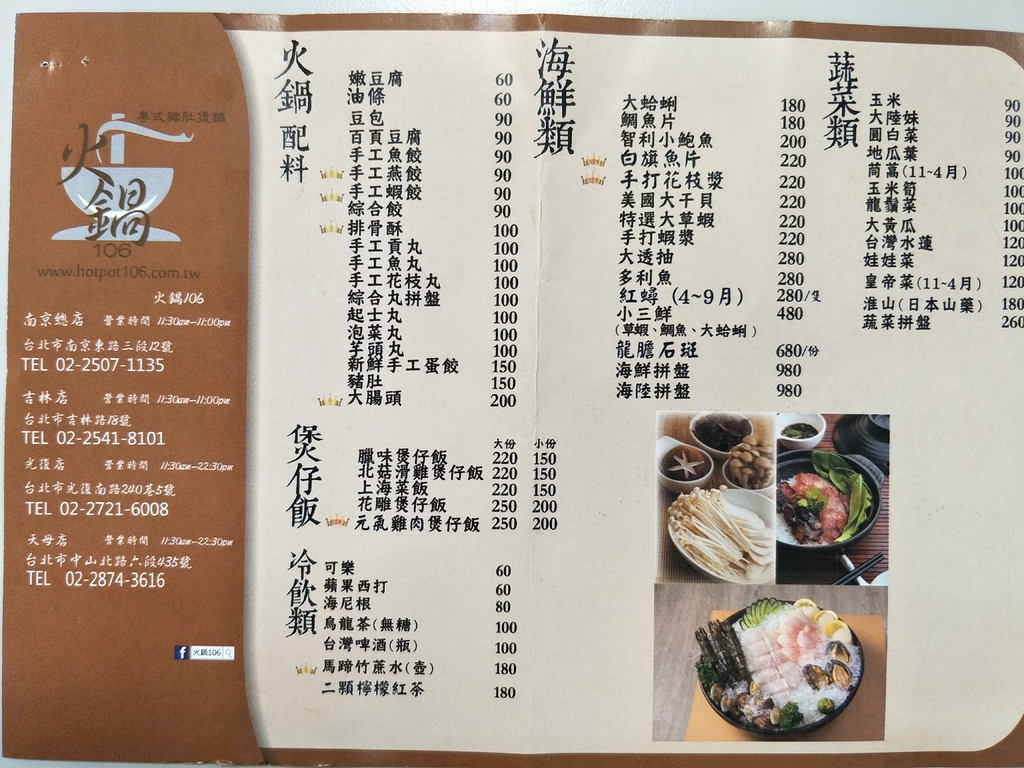 粵式豬肚煲鍋
火鍋
106
www.hotpot106.com.tw
火鍋106
南京總店 營業時間 11:30am-11:00pm
台北市南京東路三段12號
TEL 02-2507-1135
吉林店 營業時間 11:30am-11:00pm
台北市吉林路18號
TEL 02-2541-8101
光復店 營業時間 11:30am-22:30pm
台北市光復南路240巷5號
TEL 02-2721-6008
天母店 營業時間 11:30am-22:30pm
台北市中山北路六段435號
TEL 02-2874-3616
f 火鍋106
火鍋配料
嫩豆腐 60
油條 60
豆包 90
百頁豆腐 90
手工魚餃 90
手工燕餃 90
手工蝦餃 90
綜合餃 90
排骨酥 100
手工貢丸 100
手工魚丸 100
手工花枝丸 100
綜合丸拼盤 100
起士丸 100
泡菜丸 100
芋頭丸 100
新鮮手工蛋餃 150
豬肚 150
大腸頭 200
煲仔飯
大份 小份
臘味煲仔飯 220 150
北菇滑雞煲仔飯 220 150
上海菜飯 220 150
花雕煲仔飯 250 200
元氣雞肉煲仔飯 250 200
冷飲類
可樂 60
蘋果西打 60
海尼根 80
烏龍茶(無糖) 100
台灣啤酒(瓶) 100
馬蹄竹蔗水(壺) 180
二顆檸檬紅茶 180
海鮮類
大蛤蜊 180
鯛魚片 180
智利小鮑魚 200
白旗魚片 220
手打花枝漿 220
美國大干貝 220
特選大草蝦 220
手打蝦漿 220
大透抽 280
多利魚 280
紅蟳 (4~9月) 280/隻
小三鮮 480
(草蝦、鯛魚、大蛤蜊)
龍膽石斑 680/份
海鮮拼盤 980
海陸拼盤 980
蔬菜類
玉米 90
大陸妹 90
圓白菜 90
地瓜葉 90
茼蒿(11~4月) 100
玉米筍 100
龍鬚菜 100
大黃瓜 100
台灣水蓮 120
娃娃菜 120
皇帝菜(11~4月) 120
淮山(日本山藥) 180
蔬菜拼盤 260